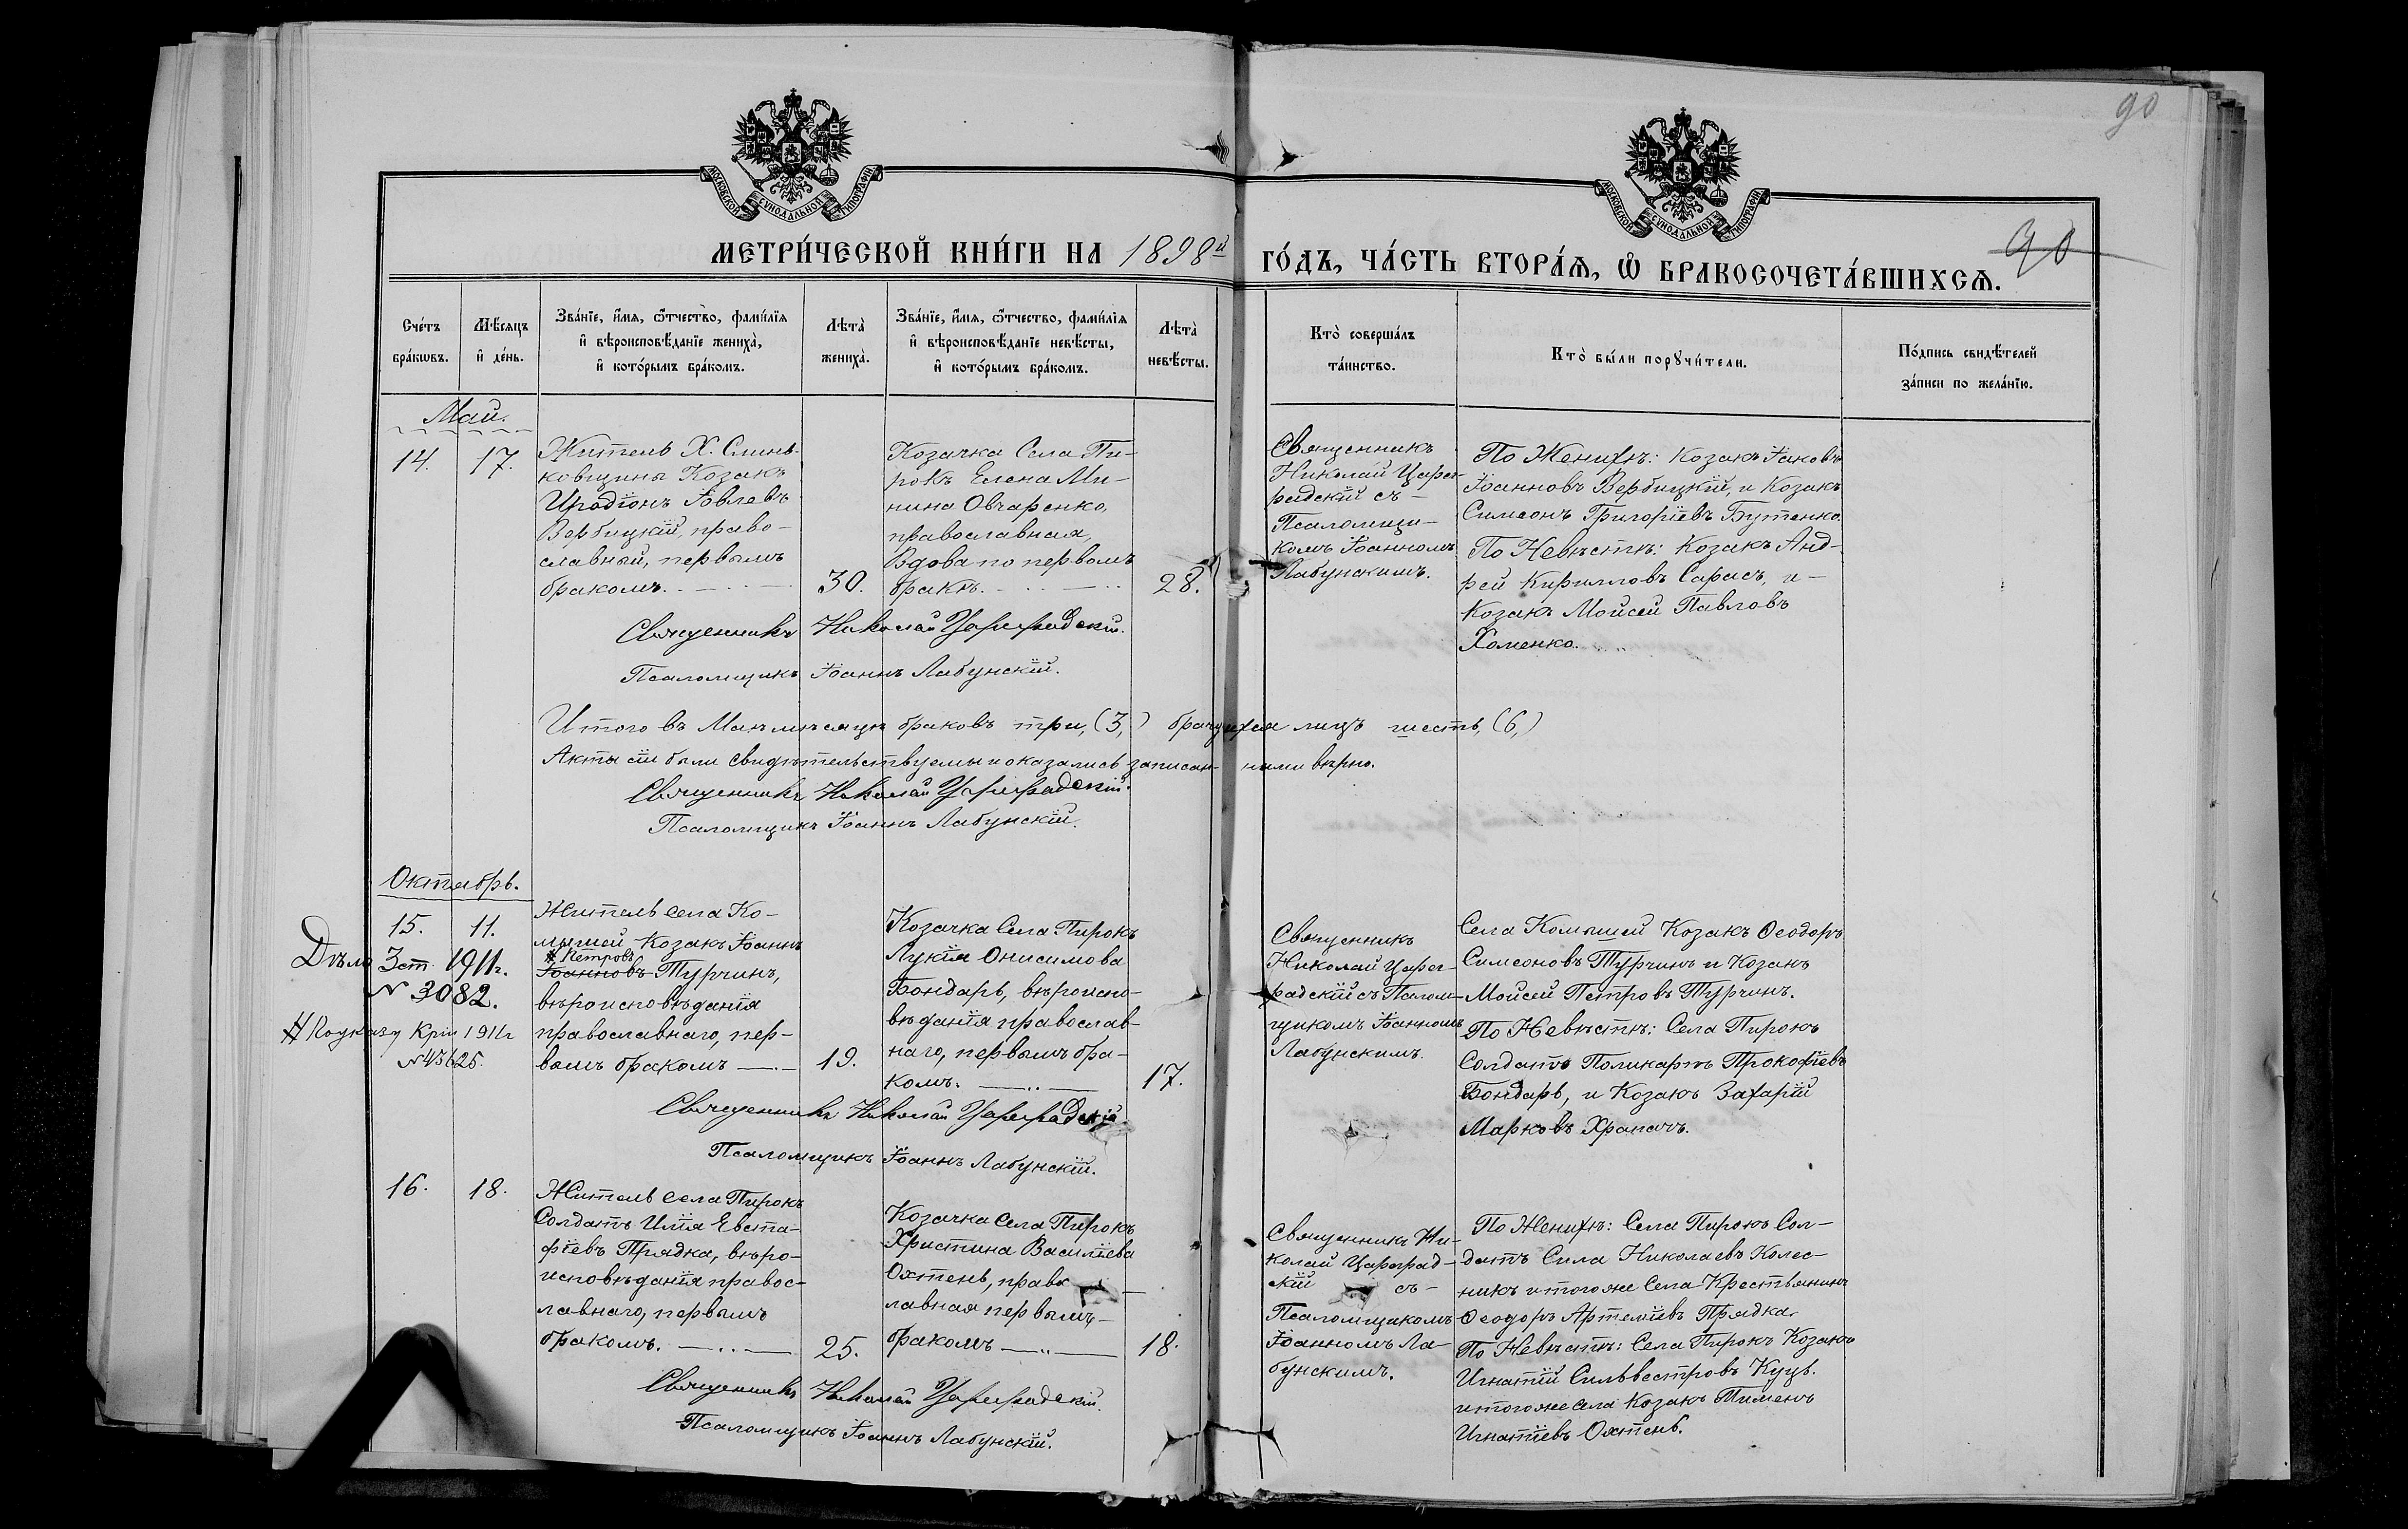 90
МОСКОВСКОЙ СѴНОДАЛЬНОЙ ТИПОГРАФІИ
МОСКОВСКОЙ СѴНОДАЛЬНОЙ ТИПОГРАФІИ
МЕТРИ́ЧЕСКОЙ КНИ́ГИ НА 1898й
ГО́ДЪ, ЧА́СТЬ ВТОРА́Ѧ, Ѡ҆ БРАКОСОЧЕТА́ВШИХСѦ.
90
Сче́тъ
бра́кѡвъ.
Мѣ́сяцъ
и҆ де́нь.
Зва́нїе, и҆́мя, ѻ҆́тчество, фами́лїя
и҆ вѣроисповѣ́данїе жениха̀,
и҆ кото́рымъ бра́комъ.
Лѣта̀
жениха̀.
Зва́нїе, и҆́мя, ѻ҆́тчество, фами́лїя
и҆ вѣроисповѣ́данїе невѣ́сты,
и҆ кото́рымъ бра́комъ.
Лѣта̀
невѣ́сты.
Кто̀ соверша́лъ
та́инство.
Кто̀ бы́ли порꙋчи́тели.
По́дпись свидѣ́телей
за́писи по жела́нїю.
Май.
14.
17.
Житель Х. Слинь-
ковщины Козакъ
Иродіонъ Іовлевъ
Вербицкій, право-
славный, первымъ
бракомъ.
30.
Козачка Села Пи-
рокъ Елена Ми-
нина Овчаренко,
православная,
Вдова по первомъ
бракѣ.
28.
Священникъ
Николай Царег-
радскій съ -
Псаломщи-
комъ Іоанномъ
Лабунскимъ.
По Женихѣ: Козакъ Іаковъ
Іоанновъ Вербицкій, и Козакъ
Симеонъ Григоріевъ Бутенко.
По Невѣстѣ: Козакъ Анд-
рей Кирилловъ Сарасъ, и -
Козакъ Мойсей Павловъ
Хоменко.
Священникъ Николай Цареградскій.
Псаломщикъ Іоаннъ Лабунскій.
Итого въ Маѣ мѣсяцѣ браковъ три, (3,) брачущихся лицъ шесть, (6,)
Акты сіи были свидѣтельствуемы и оказались записан- ными вѣрно.
Священникъ Николай Цареградскій.
Псаломщикъ Іоаннъ Лабунскій.
Октябрь.
15.
11.
Дѣло 3 ст. 1911 г.
№ 3082.
По указу 1911 г
№ 43625.
Житель села Ко-
мышей Козакъ Іоаннъ
Петровъ
Іоанновъ Турчинъ,
вѣроисповѣданія
православнаго, пер-
вымъ бракомъ
19.
Козачка Села Пирокъ
Лукія Онисимова
Бондарь, вѣроиспо-
вѣданія православ-
наго, первымъ бра-
комъ.
17.
Священникъ
Николай Царег-
радскій съ Псалом-
щикомъ Іоанномъ
Лабунскимъ.
Села Комышей Козакъ Ѳеодоръ
Симеоновъ Турчинъ и Козакъ
Мойсей Петровъ Турчинъ.
По Невѣстѣ: Села Пирокъ
Солдатъ Поликарпъ Прокофіевъ
Бондарь, и Козакъ Захарій
Марковъ Храпачъ.
Священникъ Николай Цареградскій.
Псаломщикъ Іоаннъ Лабунскій.
16.
18.
Житель села Пирокъ
Солдатъ Илія Евста-
фіевъ Прядка, вѣро-
исповѣданія правос-
лавнаго, первымъ
бракомъ.
25.
Козачка Села Пирокъ
Христина Василіева
Охтень, право-
лавная первымъ
бракомъ
18.
Священникъ Ни-
колай Цареград-
скій съ -
Псаломщикомъ
Іоанномъ Ла-
бунскимъ.
По Женихѣ: Села Пирокъ Сол-
датъ Сила Николаевъ Колес-
никъ и того же Села Крестьянинъ
Ѳеодоръ Артеміевъ Прядка.
По Невѣстѣ: Села Пирокъ Козакъ
Игнатій Сильвестровъ Куць.
и того же села Козакъ Пименъ
Игнатіевъ Охтень.
Священникъ Николай Цареградскій.
Псаломщикъ Іоаннъ Лабунскій.